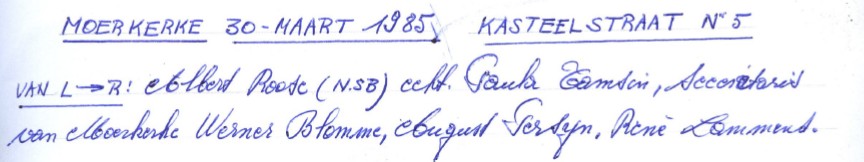 MOERKERKE 30-MAART 1985, KASTEELSTRAAT N° 5
VAN L → R: Albert Roose (N.SB) echt. Paula Tamsin, Secretaris
van Moerkerke Werner Blomme, August Persyn, René Lammens.